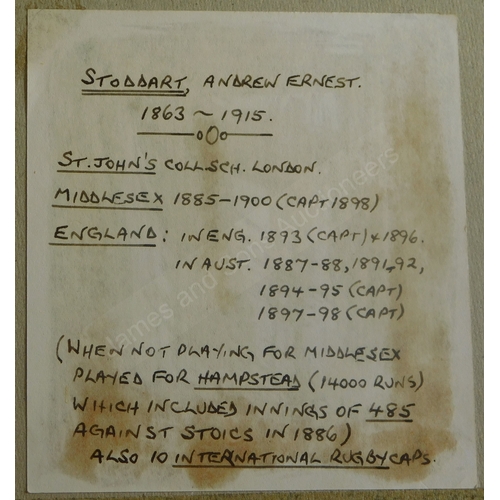 STODDART, ANDREW ERNEST.
1863 ~ 1915.
ST. JOHN'S COLL.SCH. LONDON.
MIDDLESEX 1885-1900 (CAPT 1898)
ENGLAND: IN ENG. 1893 (CAPT) + 1896.
IN AUST. 1887-88, 1891-92,
1894-95 (CAPT)
1897-98 (CAPT)
(WHEN NOT PLAYING FOR MIDDLESEX
PLAYED FOR HAMPSTEAD (14000 RUNS)
WHICH INCLUDED INNINGS OF 485
AGAINST STOICS IN 1886)
ALSO 10 INTERNATIONAL RUGBY CAPS.